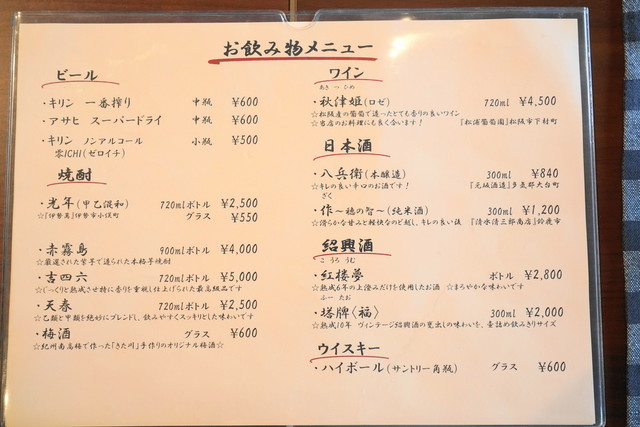 お飲み物メニュー
ビール
・キリン 一番搾り 中瓶 ¥600
・アサヒ スーパードライ 中瓶 ¥600
・キリン ノンアルコール 小瓶 ¥500
零ICHI(ゼロイチ)
焼酎
・光年(甲乙混和) 720mlボトル ¥2,500
☆『伊勢萬』伊勢市小俣町 グラス ¥550
・赤霧島 900mlボトル ¥4,000
☆厳選された紫芋で造られた本格芋焼酎
・吉四六 720mlボトル ¥5,000
☆じっくりと熟成させ特に香りを重視し仕上げられた最高級品です
・天春 720mlボトル ¥2,500
☆乙類と甲類を絶妙にブレンドし、飲みやすくスッキリとした味わいです
・梅酒 グラス ¥600
☆紀州南高梅で作った「きた川」手作りのオリジナル梅酒☆
ワイン
あきつひめ
・秋津姫(ロゼ) 720ml ¥4,500
☆松阪産の葡萄で造ったとても香りの良いワイン
☆当店のお料理にも良く合います! 『松浦葡萄園』松阪市下村町
日本酒
・八兵衛(本醸造) 300ml ¥840
☆キレの良い辛口のお酒です! 『元坂酒造』多気郡大台町
ざく
・作~穂の智~(純米酒) 300ml ¥1,200
☆滑らかな甘みと軽快なのど越し、キレの良い後 『清水清三郎商店』鈴鹿市
紹興酒
こうろうむ
・紅楼夢 ボトル ¥2,800
☆熟成6年の上澄みだけを使用したお酒 ☆まろやかな味わいです
ふーたお
・塔牌〈福〉 300ml ¥2,000
☆熟成10年 ヴィンテージ紹興酒の甕出しの味わいを、壺詰め飲みきりサイズ
ウイスキー
・ハイボール(サントリー角瓶) グラス ¥600